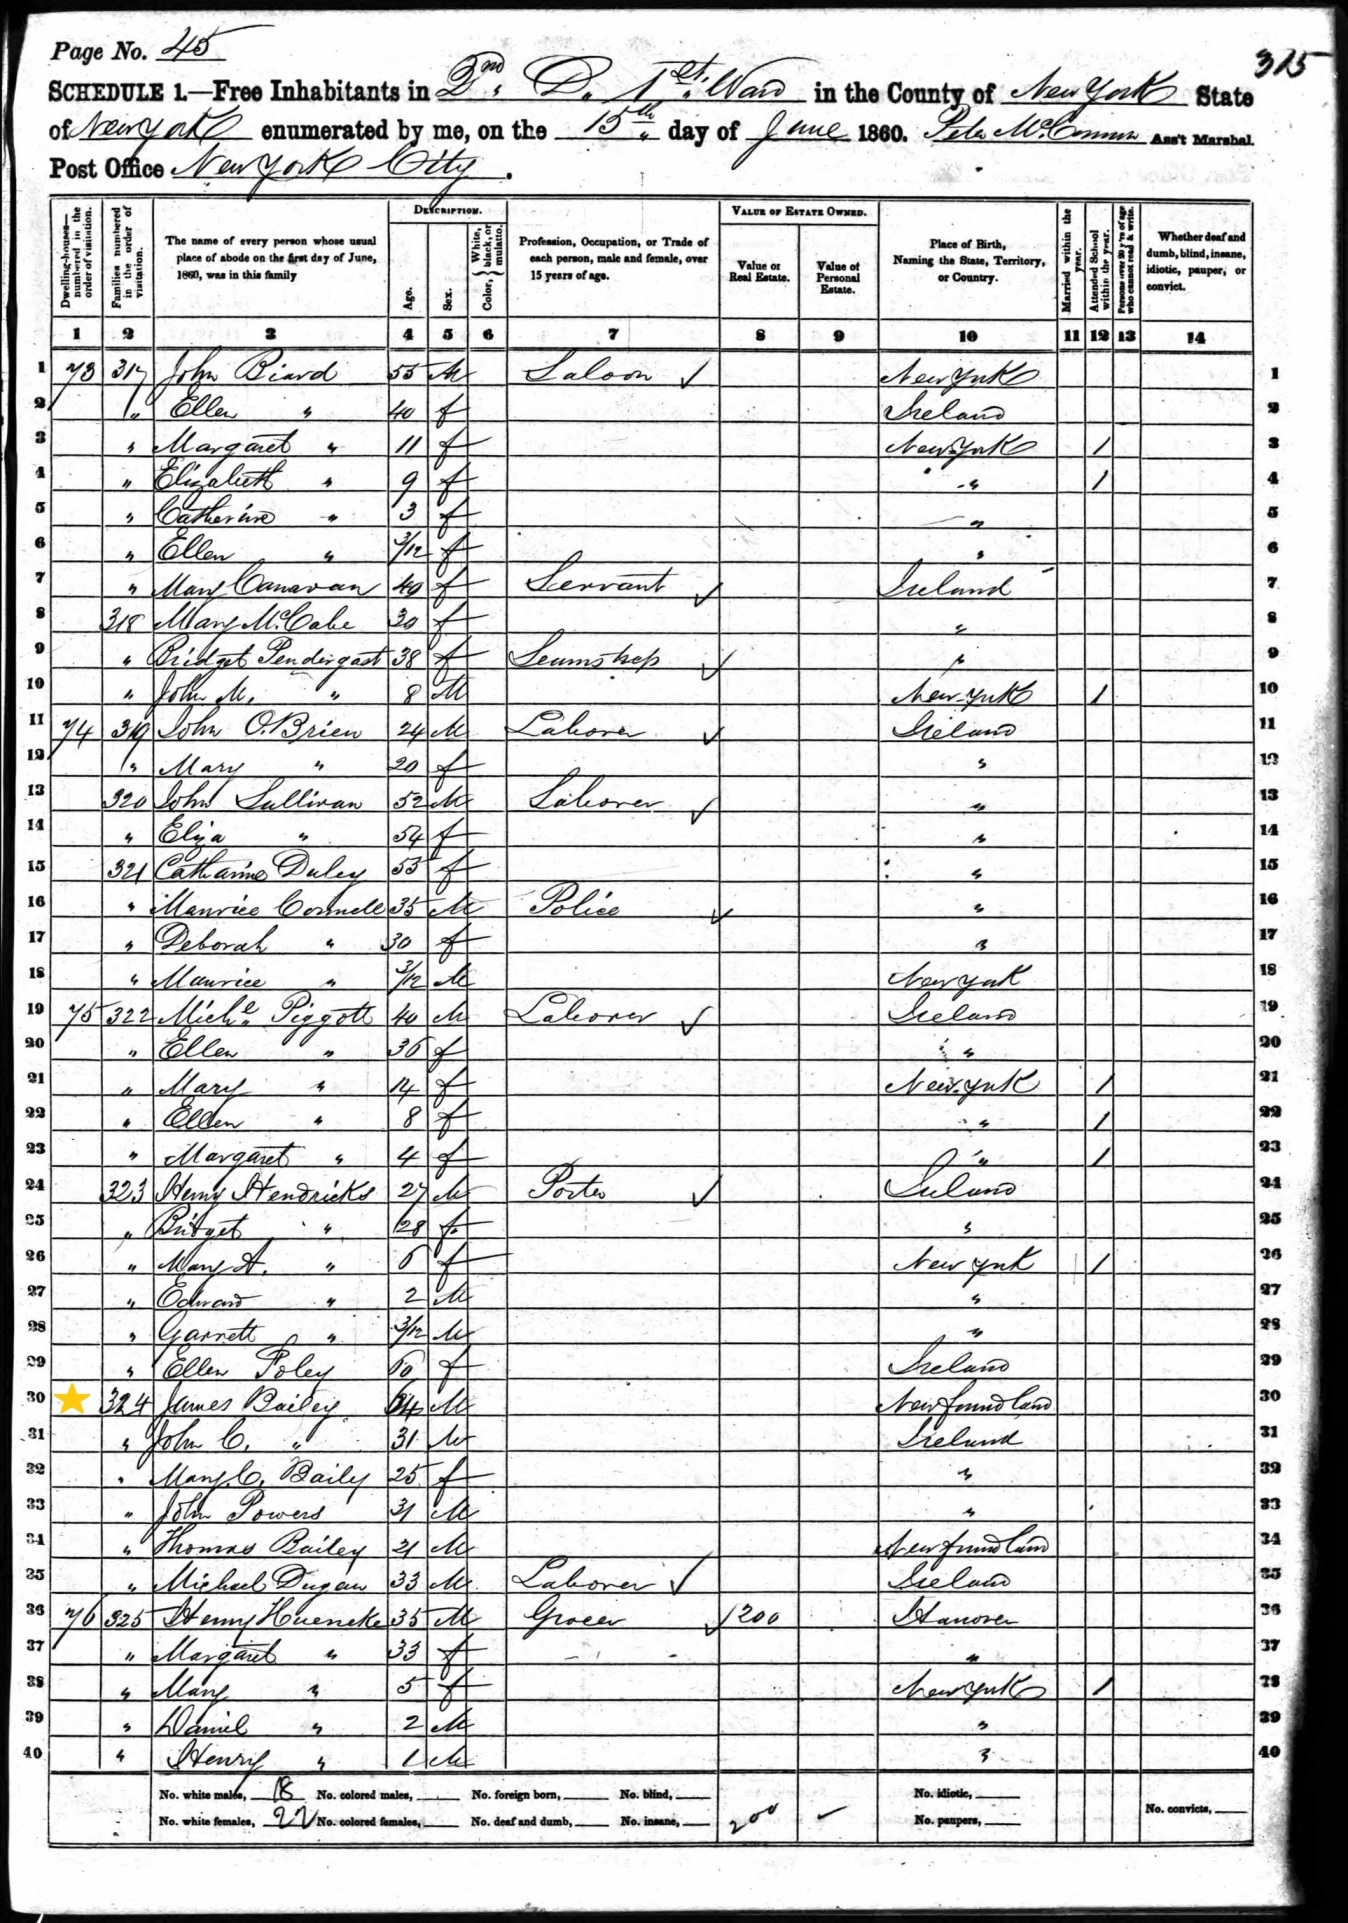 Page No. 45
315
SCHEDULE 1.—Free Inhabitants in 2nd D. 1st Ward in the County of New York State
of New York enumerated by me, on the 15th day of June 1860. Peter Ass't Marshal.
Post Office New York City.
DESCRIPTION. VALUE OF ESTATE OWNED.
Dwelling-houses—numbered in the order of visitation. Families numbered in the order of visitation. The name of every person whose usual place of abode on the first day of June, 1860, was in this family Age. Sex. Color, {White, black, or mulatto. Profession, Occupation, or Trade of each person, male and female, over 15 years of age. Value of Real Estate. Value of Personal Estate. Place of Birth, Naming the State, Territory, or Country. Married within the year. Attended School within the year. Persons over 20 y'rs of age who cannot read & write. Whether deaf and dumb, blind, insane, idiotic, pauper, or convict.
1 2 3 4 5 6 7 8 9 10 11 12 13 14
1 73 317 John Biard 55 M Saloon ✓ New York 1
2 " Ellen " 40 f Ireland 2
3 " Margaret " 11 f New York 1 3
4 " Elizabeth " 9 f " 1 4
5 " Catherine " 3 f " 5
6 " Ellen " 3/12 f " 6
7 " Mary Canavan 40 f Servant ✓ Ireland 7
8 318 Mary McCabe 30 f " 8
9 " Bridget Pendergast 38 f ✓ " 9
10 " John M. " 8 M New York 1 10
11 74 319 John O.Brien 24 M Laborer ✓ Ireland 11
12 " Mary " 20 f " 12
13 320 John Sullivan 52 M Laborer ✓ " 13
14 " Eliza " 54 f " 14
15 321 Catharine Daley 53 f " 15
16 " Maurice Connell 35 M Police ✓ " 16
17 " Deborah " 30 f " 17
18 " Maurice " 3/12 M New York 18
19 75 322 Michl Piggott 40 M Laborer ✓ Ireland 19
20 " Ellen " 36 f " 20
21 " Mary " 14 f New York 1 21
22 " Ellen " 8 f " 1 22
23 " Margaret " 4 f " 1 23
24 323 Henry Hendricks 27 M Porter ✓ Ireland 24
25 " Bridget " 28 f " 25
26 " Mary A. " 6 f New York 1 26
27 " Edward " 2 M " 27
28 " Garrett " 3/12 M " 28
29 " Ellen Foley 60 f Ireland 29
30 324 James Bailey 64 M Newfoundland 30
31 " John C. " 31 M Ireland 31
32 " Mary C. Baily 25 f " 32
33 " John Powers 31 M " 33
34 " Thomas Bailey 21 M Newfoundland 34
35 " Michael Dugan 33 M Laborer ✓ Ireland 35
36 76 325 Henry Huencke 35 M Grocer ✓ 200 Hanover 36
37 " Margaret " 33 f " 37
38 " Mary " 5 f New York 1 38
39 " Daniel " 2 M " 39
40 " Henry " 1 M " 40
No. white males, 18 No. colored males, No. foreign born, No. blind, No. idiotic,
No. white females, 22 No. colored females, No. deaf and dumb, No. insane, 200 No. paupers, No. convicts,